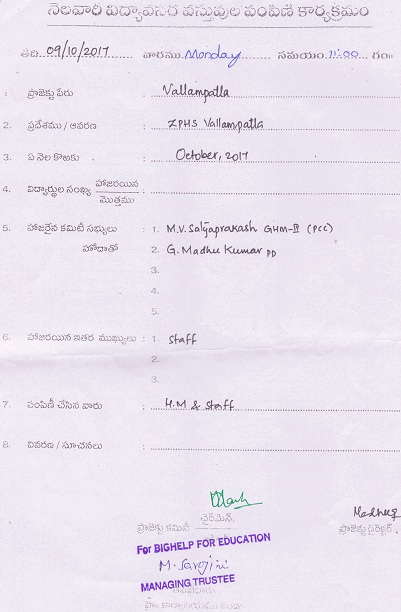 నెలవారీ విద్యావసర వస్తువుల పంపిణీ కార్యక్రమం
తేది. 09/10/2017 వారము Monday సమయం 11:00 గం॥
1. ప్రాజెక్టు పేరు : Vallampatla
2. ప్రదేశము / ఆవరణ : ZPHS Vallampatla
3. ఏ నెల కొఱకు : October, 2017
4. విద్యార్థుల సంఖ్య హాజరయిన / మొత్తము :
5. హాజరైన కమిటీ సభ్యులు : 1. M.V. Satyaprakash GHM-II (PCC)
హోదాతో 2. G. Madhu Kumar PD
3.
4.
5.
6. హాజరయిన ఇతర ముఖ్యులు : 1 staff
2.
3.
7. పంపిణీ చేసిన వారు : H.M & staff
8. వివరణ / సూచనలు :
ఛైర్మెన్,
ప్రాజెక్టు కమిటీ
ప్రాజెక్టు డైరెక్టర్.
For BIGHELP FOR EDUCATION
M. Sarojini
MANAGING TRUSTEE